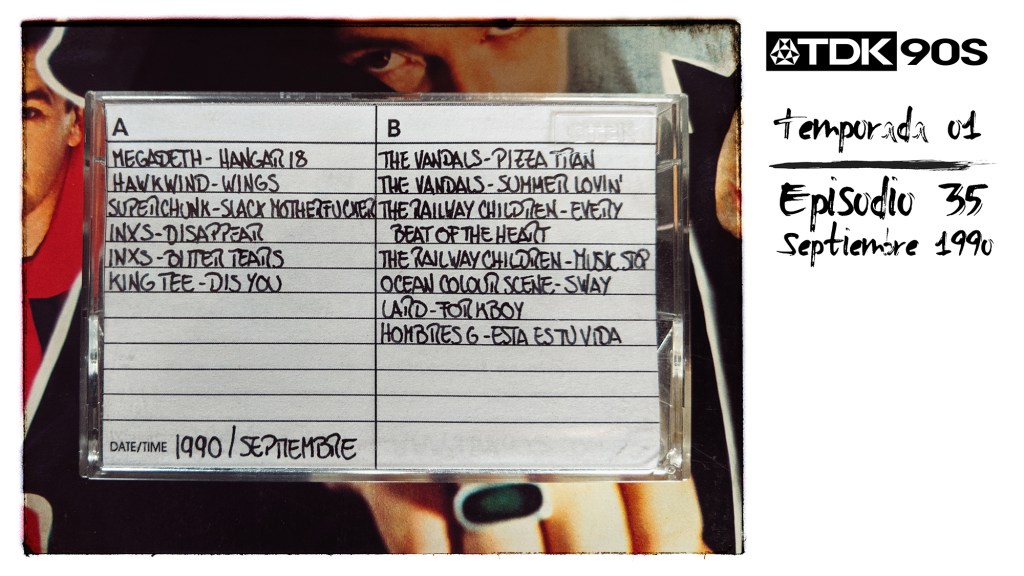 A
MEGADETH - HANGAR 18
HAWKWIND - WINGS
SUPERCHUNK - SLACK MOTHERFUCKER
INXS - DISAPPEAR
INXS - BITTER TEARS
KING TEE - DIS YOU
DATE/TIME 1990 / SEPTIEMBRE
B
THE VANDALS - PIZZA TITAN
THE VANDALS - SUMMER LOVIN'
THE RAILWAY CHILDREN - EVERY
BEAT OF THE HEART
THE RAILWAY CHILDREN - MUSIC STOP
OCEAN COLOUR SCENE - SWAY
LARD - FORKBOY
HOMBRES G - ESTA ES TU VIDA
TDK 90S
Temporada 01
Episodio 35
Septiembre 1990